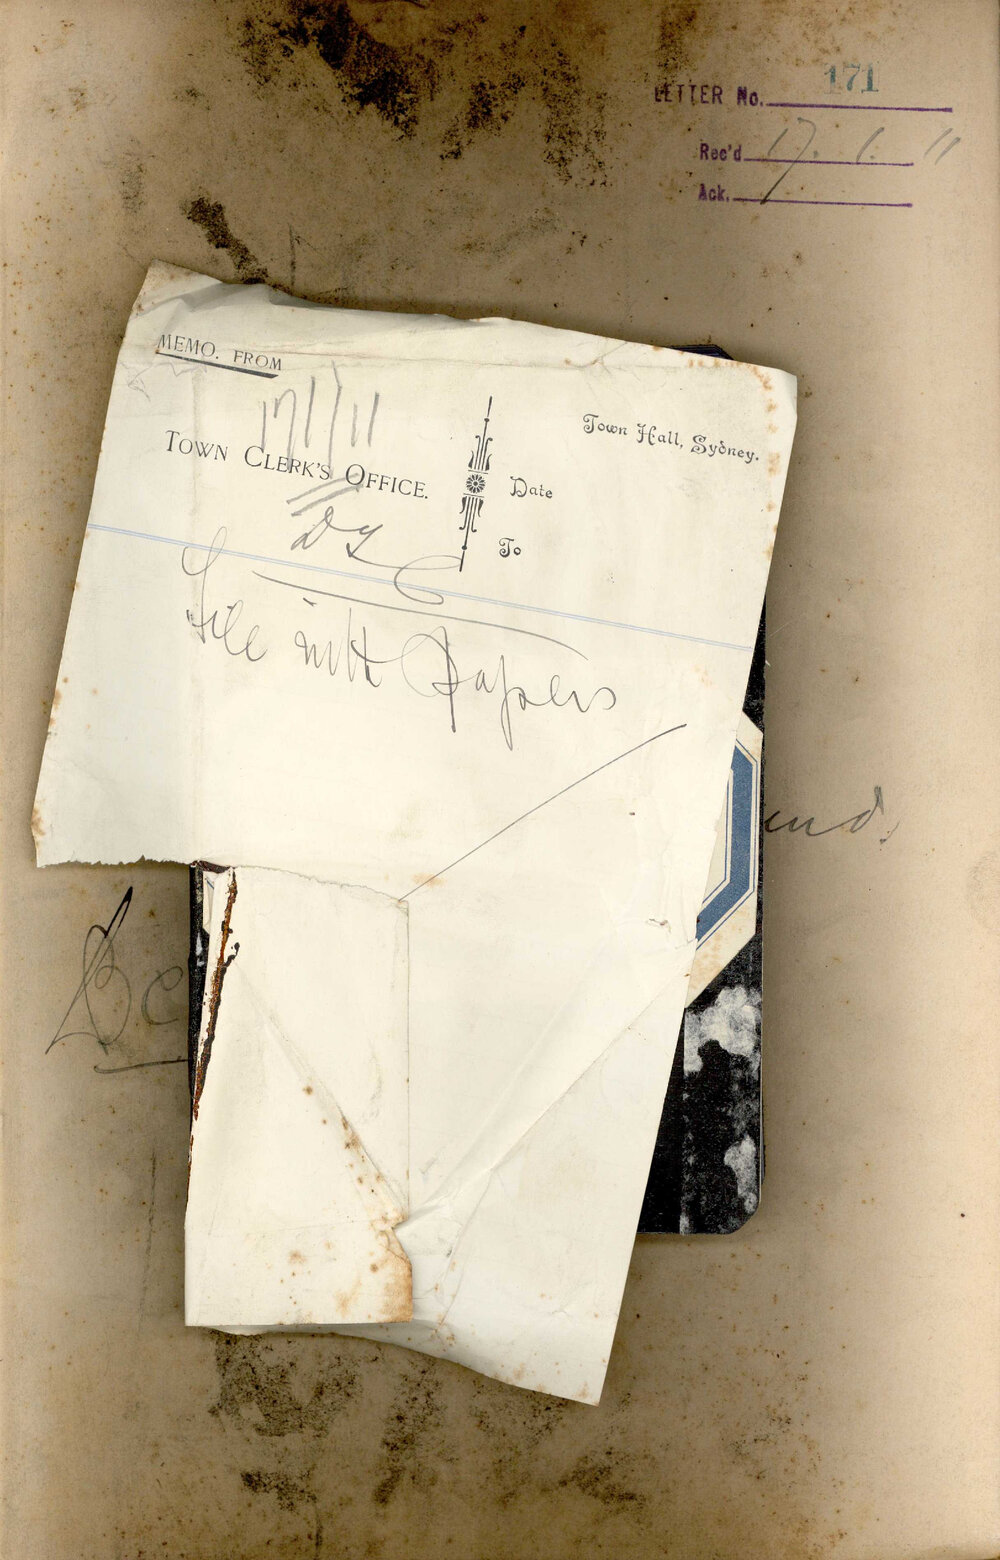 LETTER No. 171
Rec'd 17. 1. 11
Ack.
MEMO. FROM
17/1/11
Town Hall, Sydney.
TOWN CLERK'S OFFICE.
Date
To
File with Papers